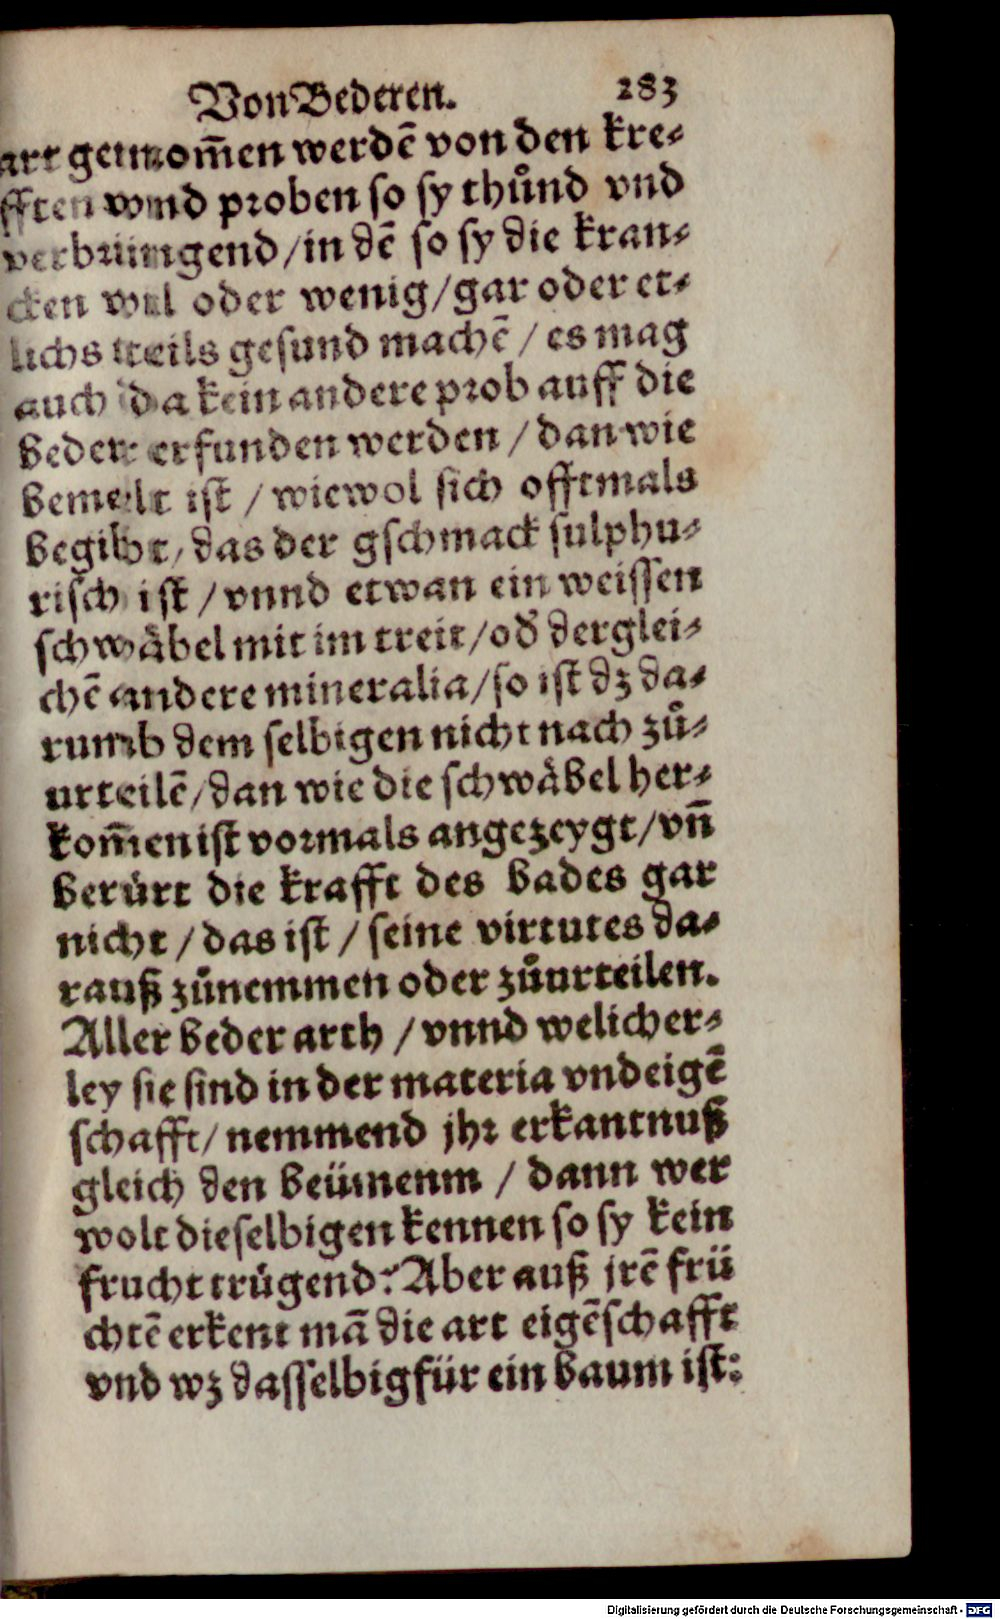 Von Bederen. 283
art genom̃en werdẽ von den kre⸗
fften vnnd proben so sy thůnd vnd
verbringend / in dẽ so sy die kran⸗
cken vil oder wenig / gar oder et⸗
lichs teils gesund machẽ / es mag
auch da kein andere prob auff die
beder erfunden werden / dan wie
bemelt ist / wiewol sich offtmals
begibt / das der gschmack sulphu⸗
risch ist / vnnd etwan ein weissen
schwaͤbel mit im treit / od̕ derglei⸗
chẽ andere mineralia / so ist dz da⸗
rumb dem selbigen nicht nach zů⸗
urteilẽ / dan wie die schwaͤbel her⸗
kom̃en ist vormals angezeygt / vñ
beruͤrt die krafft des bades gar
nicht / das ist / seine virtutes da⸗
rauß zůnemmen oder zůurteilen.
Aller beder arth / vnnd welicher⸗
ley sie sind in der materia vnd eigẽ
schafft / nemmend jhr erkantnuß
gleich den beümenm / dann wer
wolt dieselbigen kennen so sy kein
frucht truͤgend? Aber auß jrẽ frü
chtẽ erkent mã die art eigẽschafft
vnd wz dasselbig für ein baum ist:
Digitalisierung gefördert durch die Deutsche Forschungsgemeinschaft - DFG